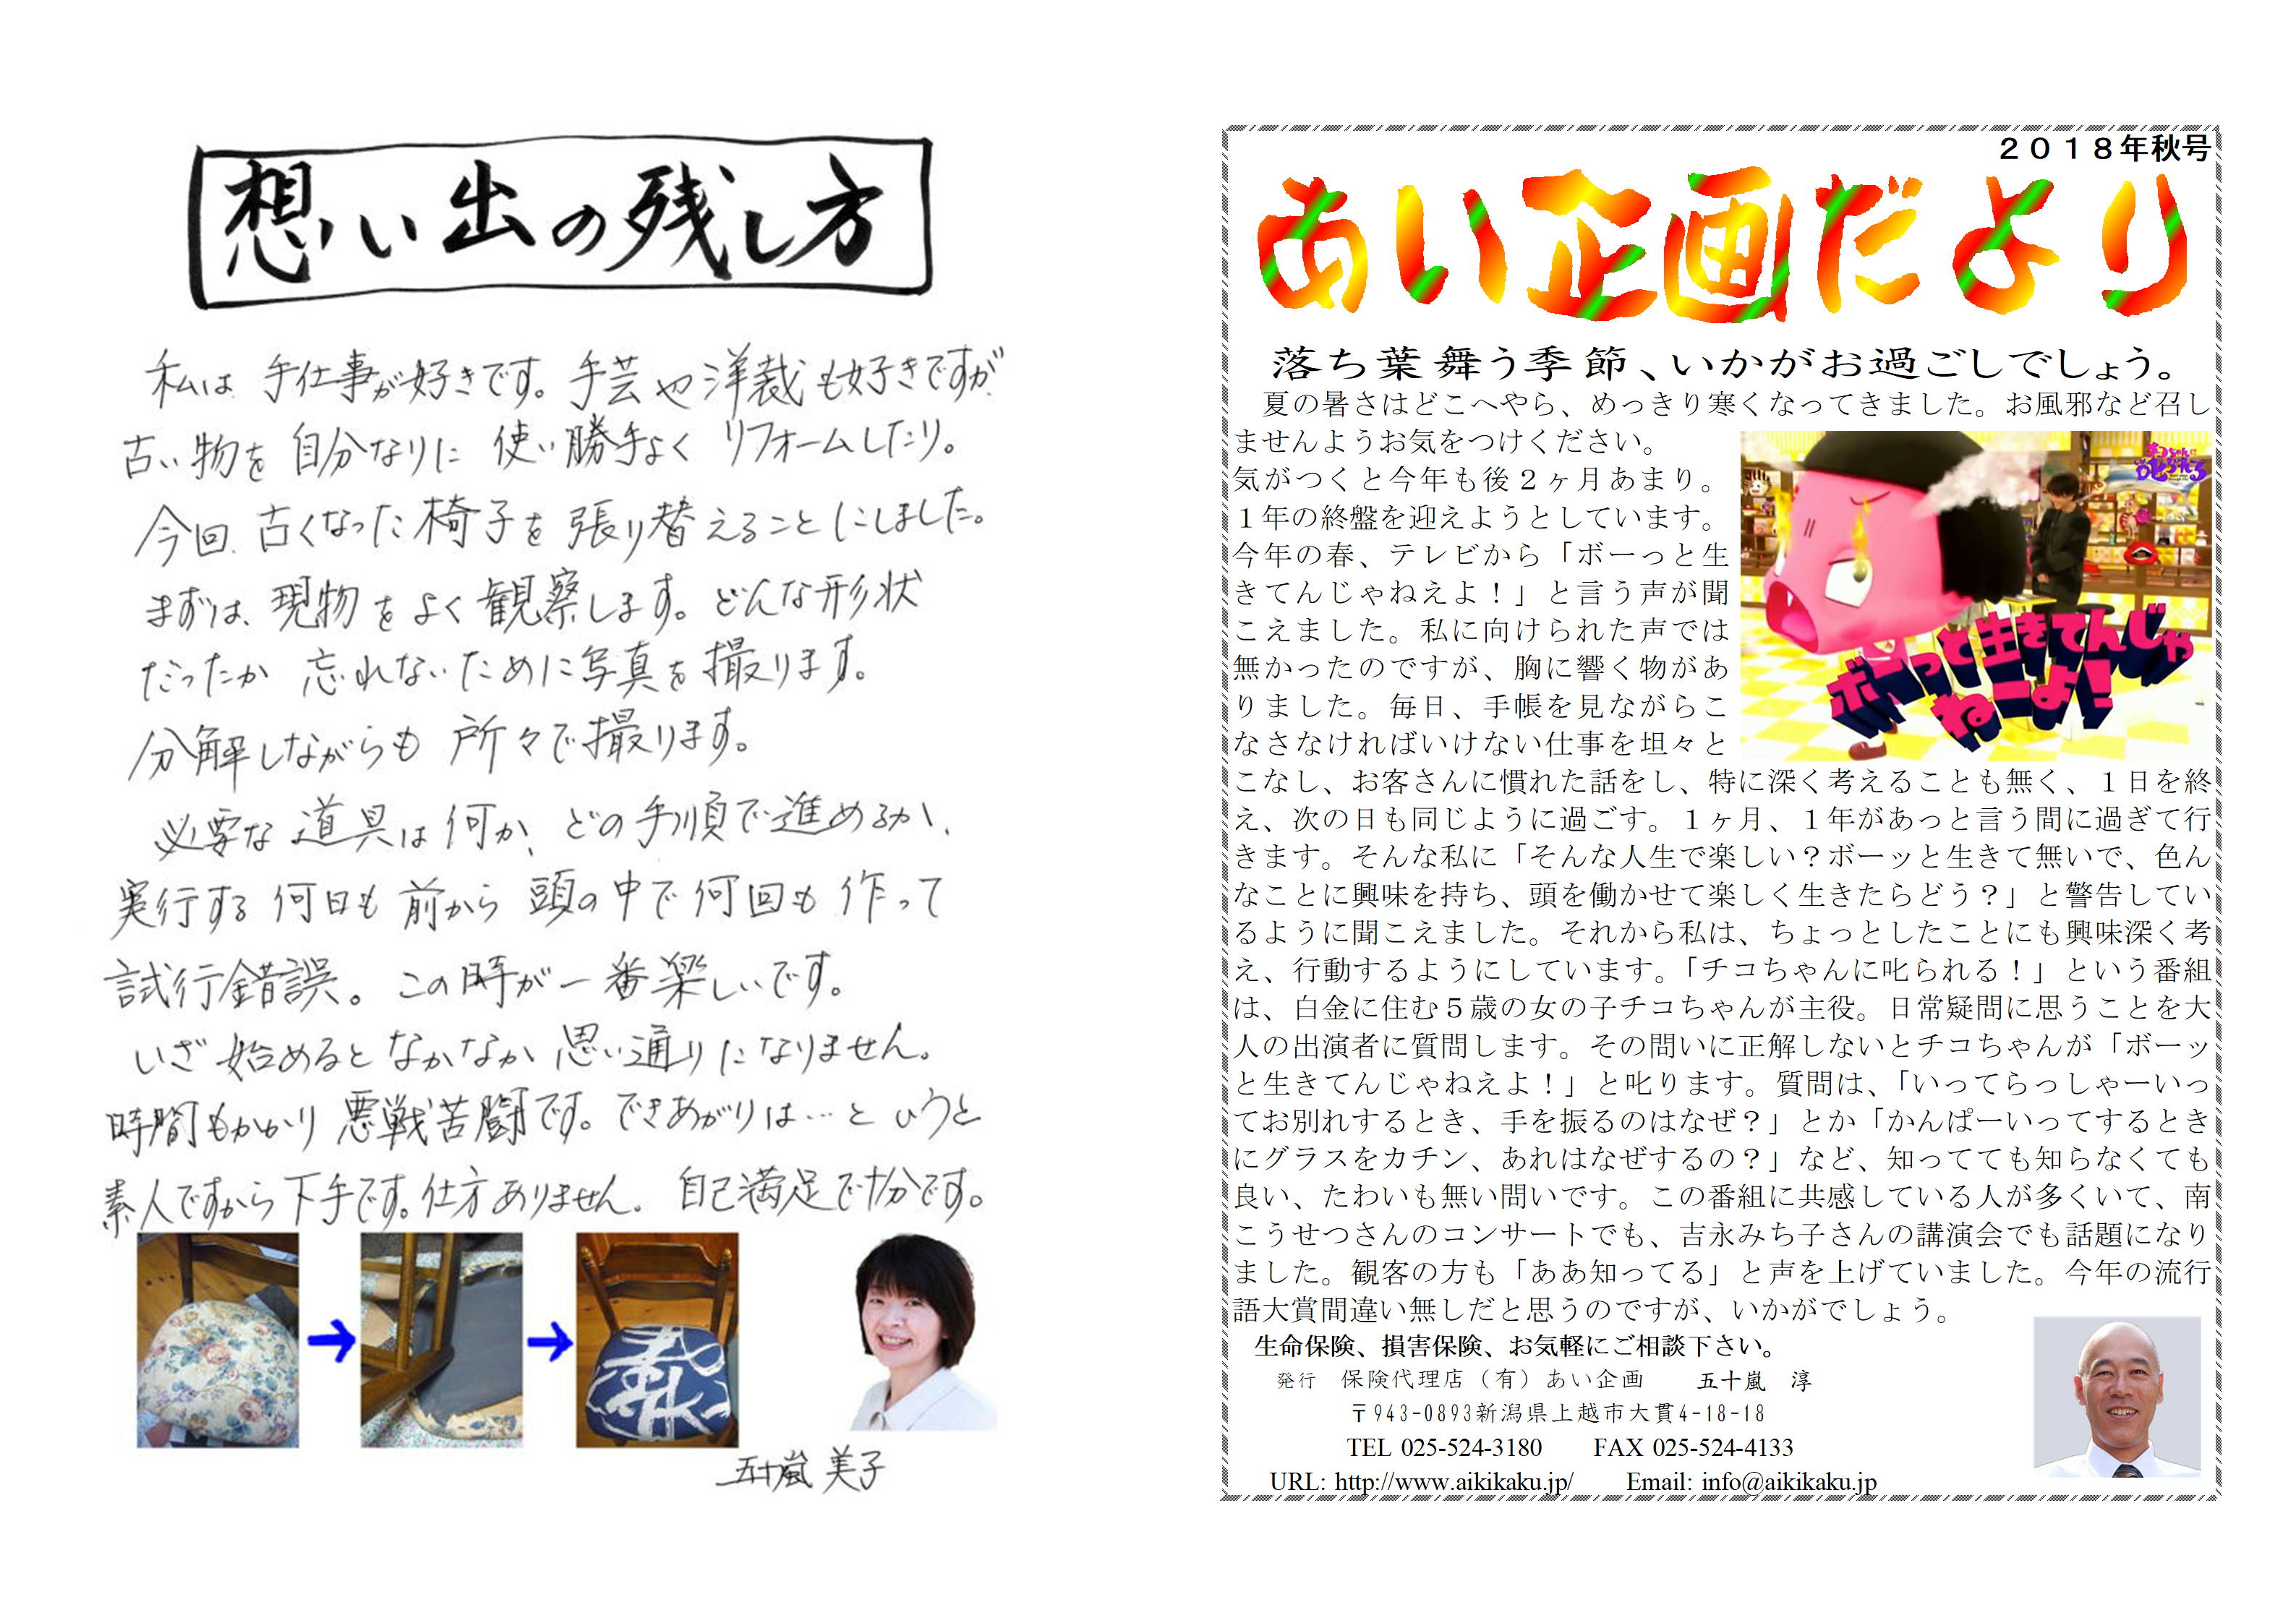 想い出の残し方
私は手仕事が好きです。手芸や洋裁も好きですが、
古い物を自分なりに使い勝手よくリフォームしたり。
今回、古くなった椅子を張り替えることにしました。
まずは、現物をよく観察します。どんな形状
だったか忘れないために写真を撮ります。
分解しながらも所々で撮ります。
必要な道具は何か、どの手順で進めるか、
実行する何日も前から頭の中で何回も作って
試行錯誤。この時が一番楽しいです。
いざ始めるとなかなか思い通りになりません。
時間もかかり悪戦苦闘です。できあがりは…というと
素人ですから下手です。仕方ありません。自己満足で十分です。
五十嵐 美子
２０１８年秋号
あい企画だより
落ち葉舞う季節、いかがお過ごしでしょう。
夏の暑さはどこへやら、めっきり寒くなってきました。お風邪など召し
ませんようお気をつけください。
気がつくと今年も後２ヶ月あまり。
１年の終盤を迎えようとしています。
今年の春、テレビから「ボーっと生
きてんじゃねえよ！」と言う声が聞
こえました。私に向けられた声では
無かったのですが、胸に響く物があ
りました。毎日、手帳を見ながらこ
なさなければいけない仕事を坦々と
チコちゃんに
叱られる
ボーっと生きてんじゃ
ねーよ！
こなし、お客さんに慣れた話をし、特に深く考えることも無く、１日を終
え、次の日も同じように過ごす。１ヶ月、１年があっと言う間に過ぎて行
きます。そんな私に「そんな人生で楽しい？ボーッと生きて無いで、色ん
なことに興味を持ち、頭を働かせて楽しく生きたらどう？」と警告してい
るように聞こえました。それから私は、ちょっとしたことにも興味深く考
え、行動するようにしています。「チコちゃんに叱られる！」という番組
は、白金に住む５歳の女の子チコちゃんが主役。日常疑問に思うことを大
人の出演者に質問します。その問いに正解しないとチコちゃんが「ボーッ
と生きてんじゃねえよ！」と叱ります。質問は、「いってらっしゃーいっ
てお別れするとき、手を振るのはなぜ？」とか「かんぱーいってするとき
にグラスをカチン、あれはなぜするの？」など、知ってても知らなくても
良い、たわいも無い問いです。この番組に共感している人が多くいて、南
こうせつさんのコンサートでも、吉永みち子さんの講演会でも話題になり
ました。観客の方も「ああ知ってる」と声を上げていました。今年の流行
語大賞間違い無しだと思うのですが、いかがでしょう。
生命保険、損害保険、お気軽にご相談下さい。
発行　保険代理店（有）あい企画　　五十嵐　淳
〒943-0893新潟県上越市大貫4-18-18
TEL 025-524-3180　　FAX 025-524-4133
URL: http://www.aikikaku.jp/　　Email: info@aikikaku.jp